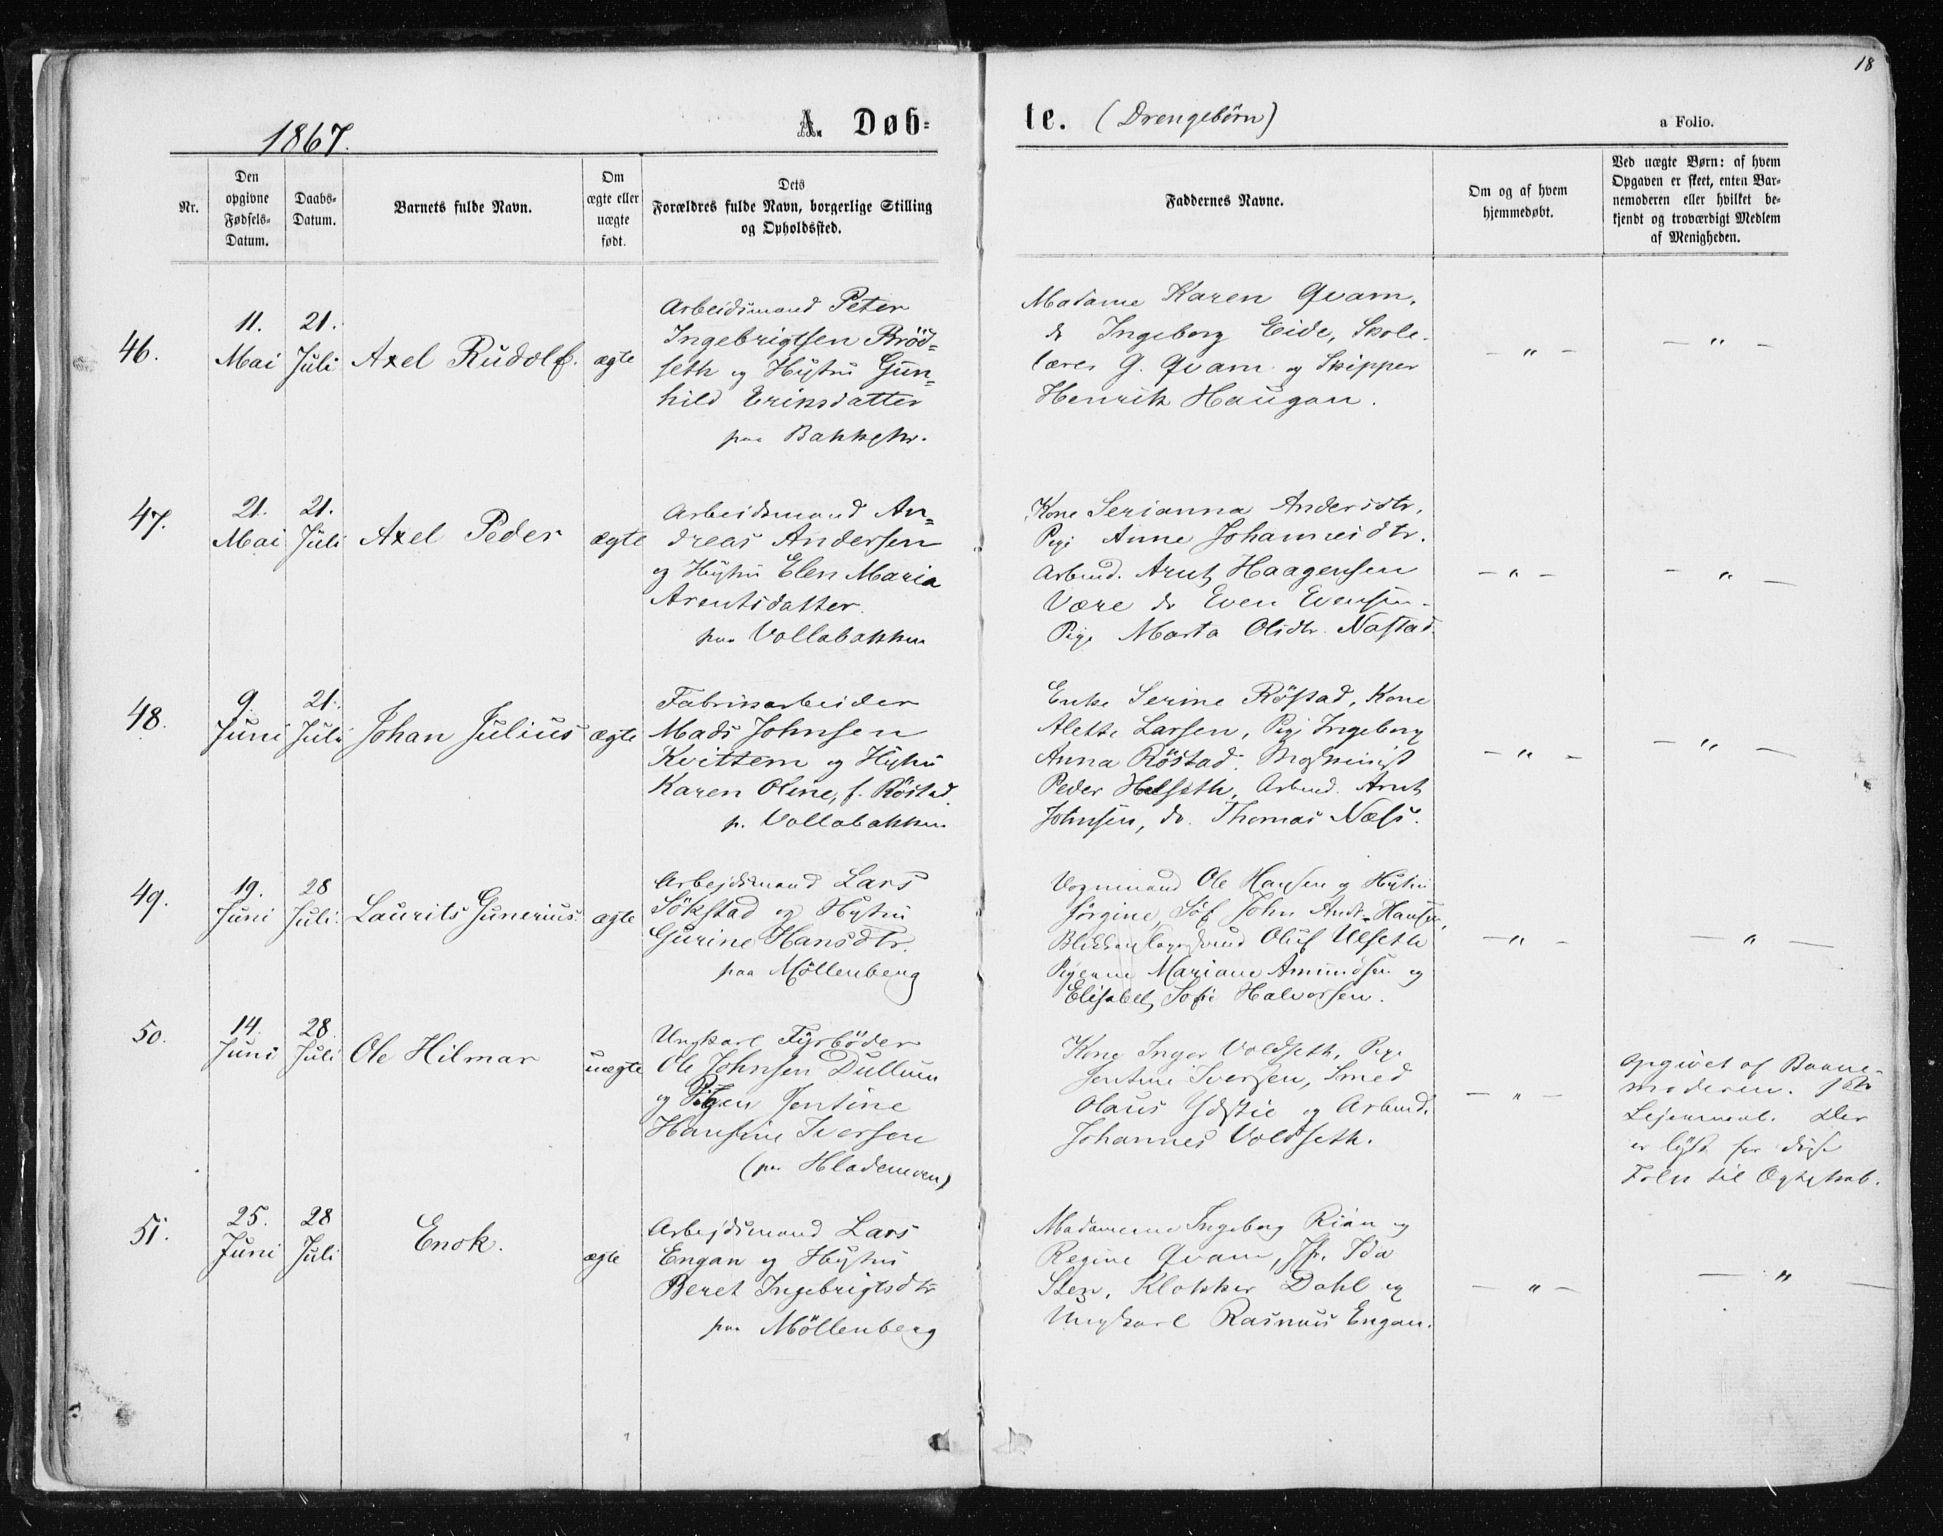 18
1867.
A. Døb-
te. (Drengebørn)
a Folio.
Nr.
Den opgivne Fødsels-Datum.
Daabs-Datum.
Barnets fulde Navn.
Om ægte eller uægte født.
Dets Forældres fulde Navn, borgerlige Stilling og Opholdssted.
Faddernes Navne.
Om og af hvem hjemmedøbt.
Ved uægte Børn: af hvem Opgaven er skeet, enten Barnemoderen eller hvilket bekjendt og troværdigt Medlem af Menigheden.
46.
11. Mai
21. Juli
Axel Rudolf.
ægte
Arbeidsmand Peter
Ingebrigtsen Bröd-
seth og Hustru Gun-
hild Eriksdatter
paa Bakkehr.
Madame Karen Qvam,
do Ingeborg Eide, Skole-
lærer G. Qvam og Skipper
Henrik Haugan.
— " —
— " —
47.
21. Mai
21. Juli
Axel Peder
ægte
Arbeidsmand An-
dreas Andersen
og Hustru Elen Maria
Arentsdatter.
paa Vollabakken
Kone Serianna Andersdtr,
Pige Anne Johannesdtr.
Arbmd. Arnt Haagensen
Være do Even Evensen
Pige Marta Olsdtr. Nastad.
— " —
— " —
48.
9. Juni
21. Juli
Johan Julius
ægte
Fabrikarbeider
Mads Johnsen
Kvittem og Hustru
Karen Oline, f. Röstad.
p. Vollabakken
Enke Serine Röstad, Kone
Alette Larsen, Pige Ingeborg
Anna Röstad.
Peder Helseth, Arbmd. Arnt
Johnsen, do. Thomas Næss.
— " —
— " —
49.
19. Juni
28 Juli.
Laurits Gunerius.
ægte
Arbejdsmand Lars
Sökstad og Hustru
Gurine Hansdtr.
paa Möllenberg
Vognmand Ole Hansen og Hustru
Jörgine, Söf John Andr. Hansen,
Blikkenslagersvend Oluf Ulseth
Pigerne Mariane Amundsen og
Elisabet Sofie Halvorsen.
— " —
— " —
50.
14. Juni
28. Juli
Ole Hilmar
uægte
Ungkarl Fyrböder
Ole Johnsen Dullum
og Pigen Jentine
Hansine Iversen
(paa Hlademoen)
Kone Inger Voldseth, Pige
Jentine Iversen, Smed
Olaus Ydstie og Arbmd.
Johannes Voldseth.
— " —
Opgivet af Barne-
moderen. 1ste
Lejermaal. Der
er lyst for disse
Folk til Ægteskab.
51.
25. Juni
28 Juli
Enok.
ægte
Arbejdsmand Lars
Engan og Hustru
Beret Ingebrigtsdtr
paa Möllenberg
Madamerne Ingeborg Rian og
Regine Qvam, Jfr. Ida
Sten, Klokker Dahl og
Ungkarl Rasmus Engan.
— " —
— " —